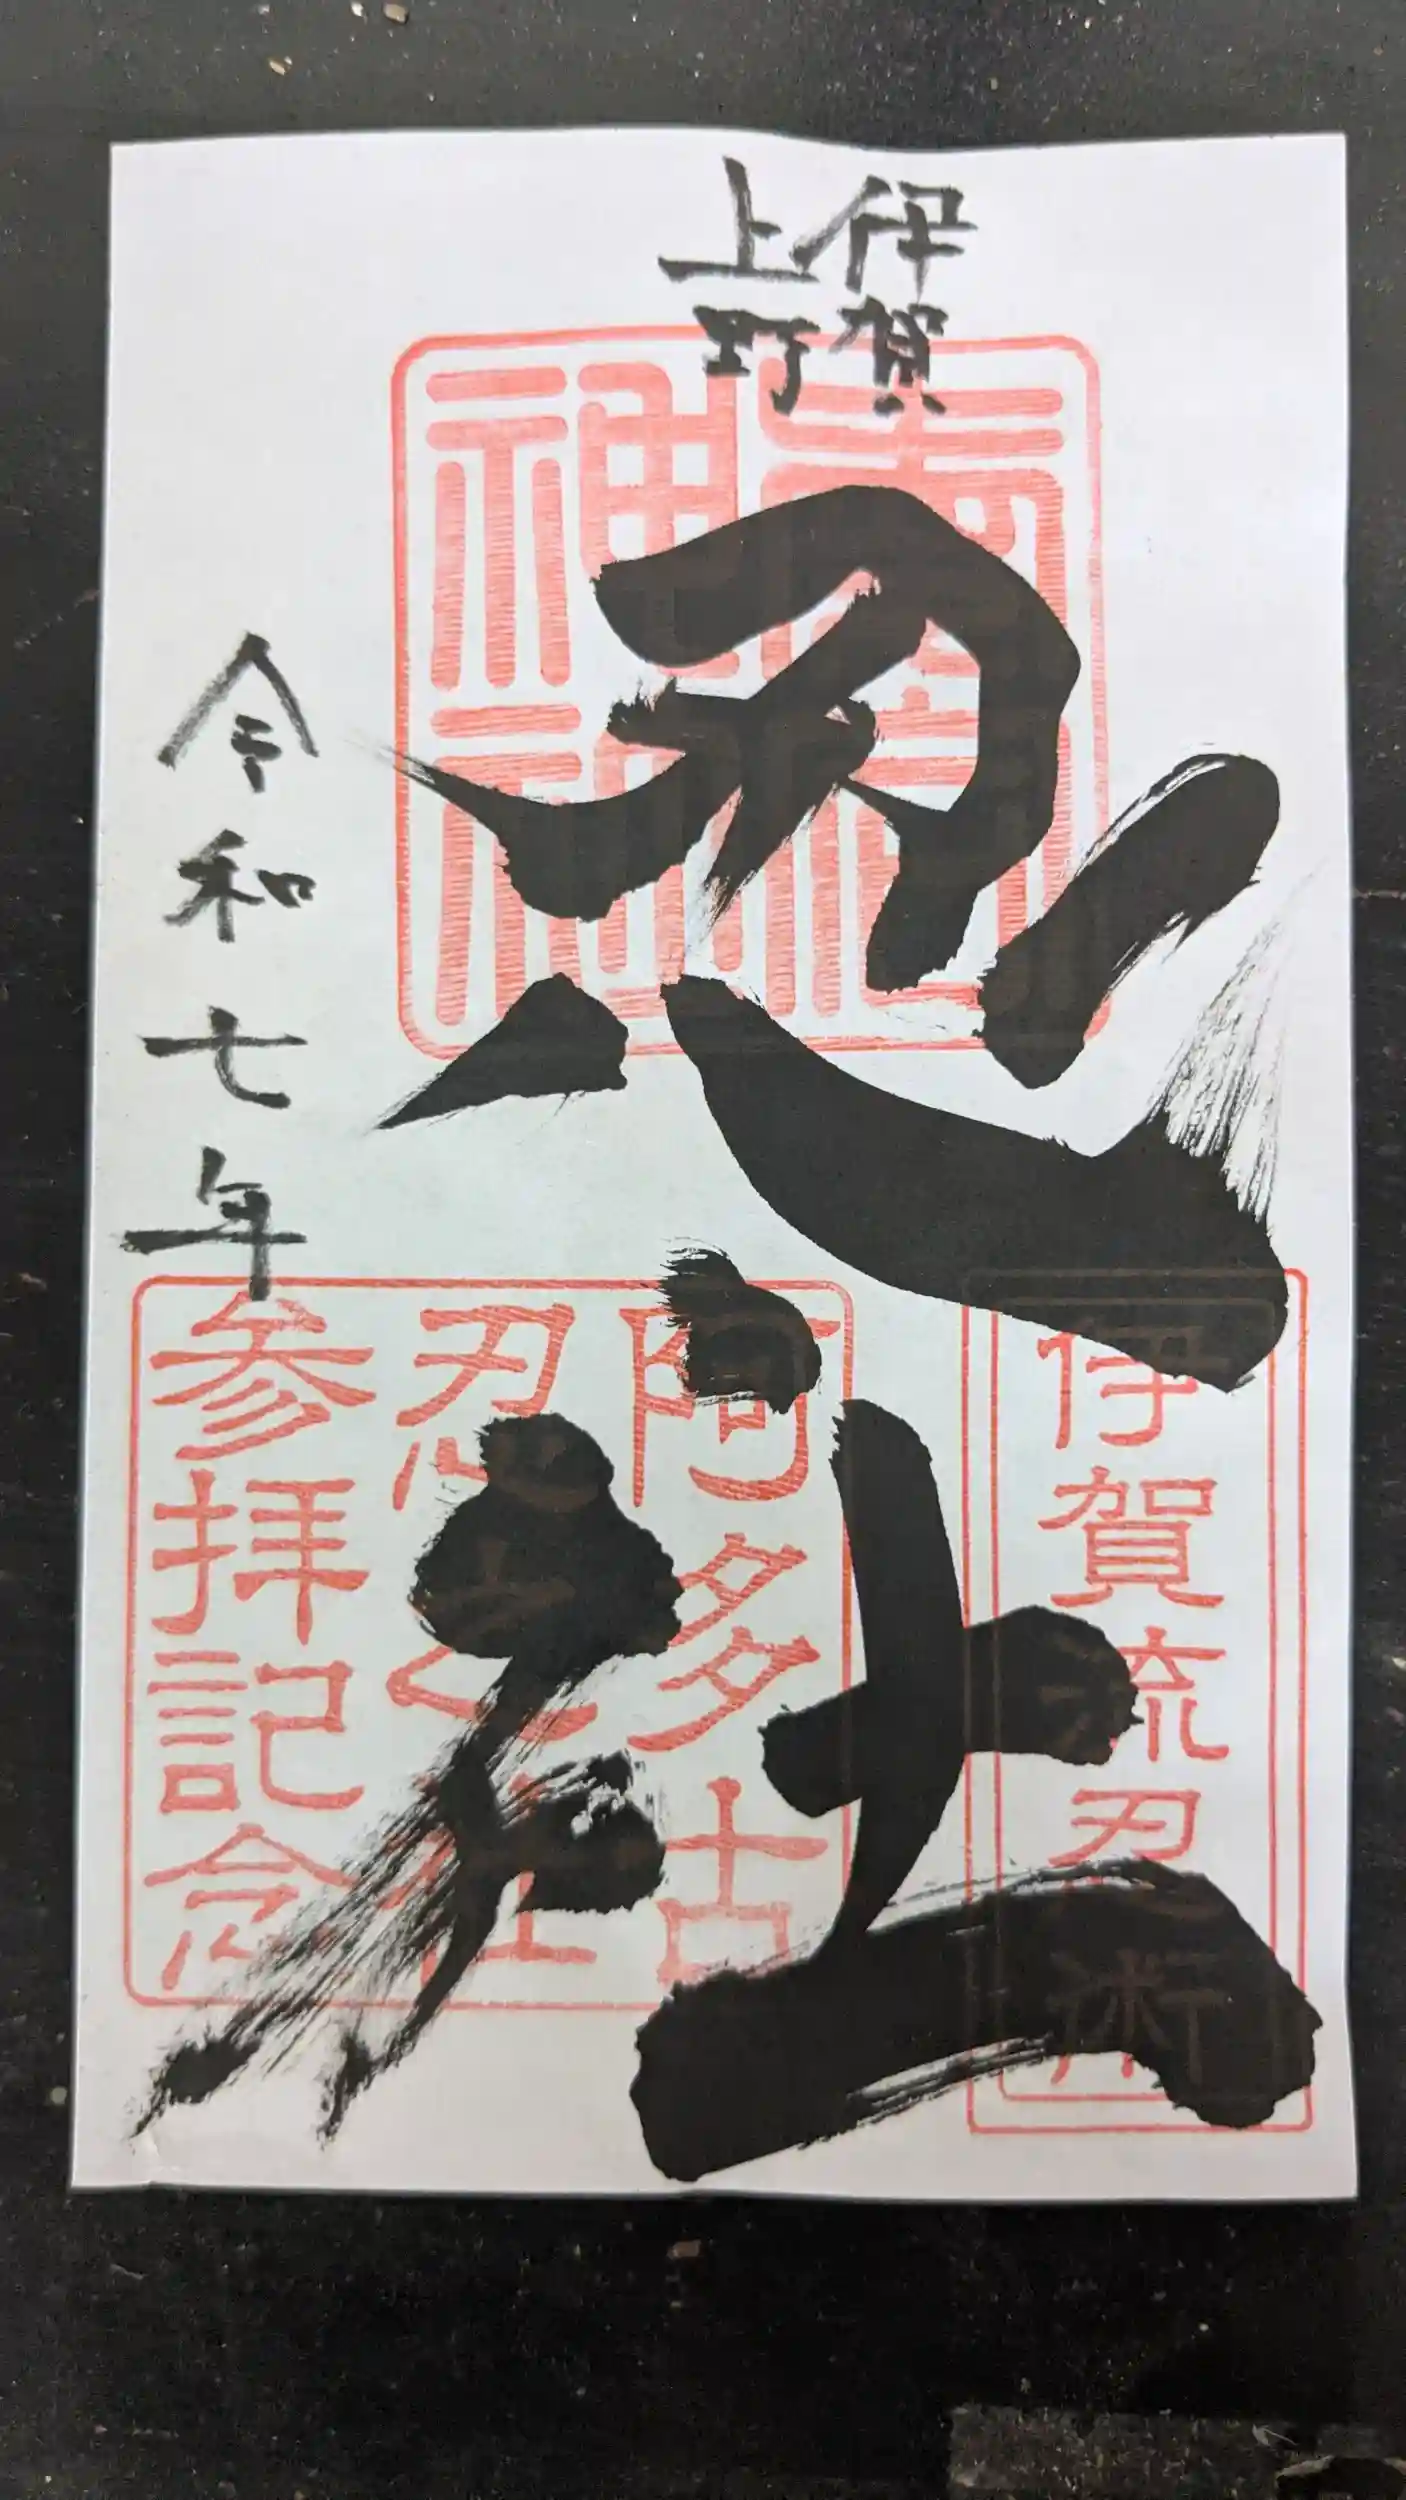 伊賀
上野
忍之社
令和七年
神社
伊賀流忍術
阿多古
忍之社
参拝記念